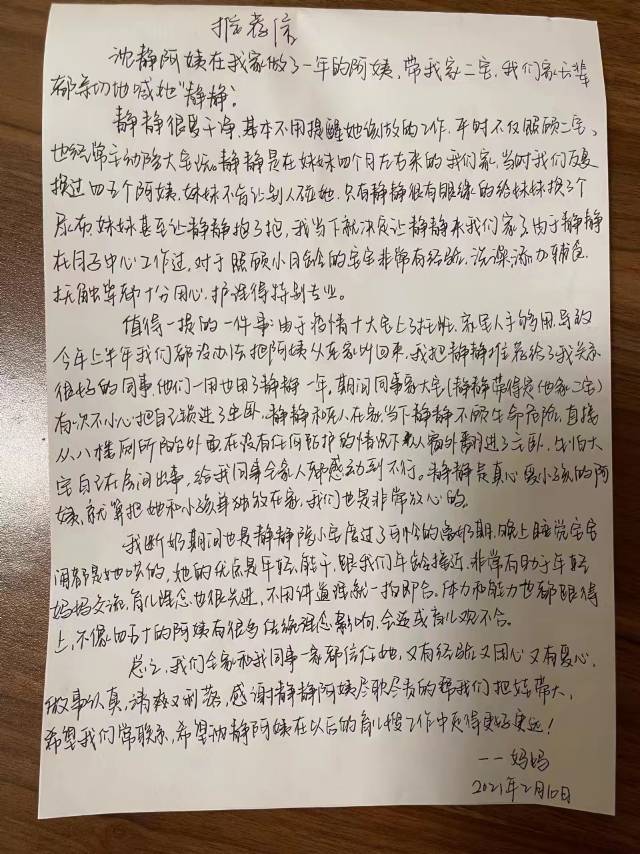 推荐信
沈静阿姨在我家做了一年的阿姨,带我家二宝,我们家长辈
都亲切地喊她"静静"。
静静很爱干净,基本不用提醒她该做的工作,平时不仅照顾二宝,
也经常主动陪大宝玩。静静是在妹妹四个月左右来的我们家,当时我们反复
换过四五个阿姨,妹妹不肯让别人碰她,只有静静很有眼缘的给妹妹换了个
尿布妹妹甚至让静静抱了抱,我当下就决定让静静来我们家了由于静静
在月子中心工作过,对于照顾小月龄的宝宝非常有经验,洗澡,添加辅食,
抚触等都十分用心,护理得特别专业。
值得一提的一件事:由于疫情+大宝上了托班,家里人手够用,导致
今年上半年我们都没办法把阿姨从老家叫回来,我把静静推荐给了我关系
很好的同事,他们一用也用了静静一年,期间同事家大宝(静静带得是他家二宝)
有一次不小心把自己锁进了主卧,静静和老人在家,当下静静不顾生命危险,直接
从八楼厕所阳台外面,在没有任何防护的情况下从窗外翻进了主卧,生怕大
宝自己在房间出事,给我同事全家人都感动到不行。静静是真心爱小孩的阿
姨,就算把她和小孩单独放在家,我们也是非常放心的。
我断奶期间也是静静陪小宝度过了两个的离奶期,晚上睡觉宝宝
闹都是她哄的,她的优点是年轻,能干,跟我们年龄接近,非常有助于年轻
妈妈交流,育儿理念也很先进,不用讲道理就一拍即合。体力和能力也都跟得
上,不像四五十的阿姨有很多传统理念影响,会造成育儿观不合。
总之,我们全家和我同事一家都信任她,又有经验又用心又有爱心,
做事认真,清爽又利落,感谢静静阿姨尽职尽责的帮我们把娃带大,
希望我们常联系,希望沈静阿姨在以后的育儿嫂工作中走得更好更远!
——妈妈
2021年2月10日